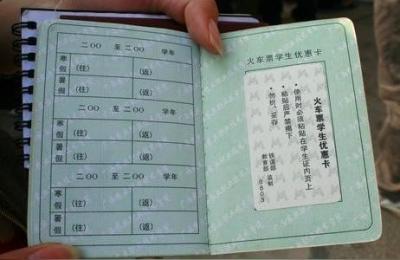 二00 至 二00 学年
寒假 (往) (返)
暑假 (往) (返)
二00 至 二00 学年
寒假 (往) (返)
暑假 (往) (返)
二00 至 二00 学年
寒假 (往) (返)
暑假 (往) (返)
火车票学生优惠卡
火车票学生优惠卡
·使用时必须粘贴在学生证内页上
·粘贴后严禁揭下
·勿折、妥存
铁道部
教育部 监制